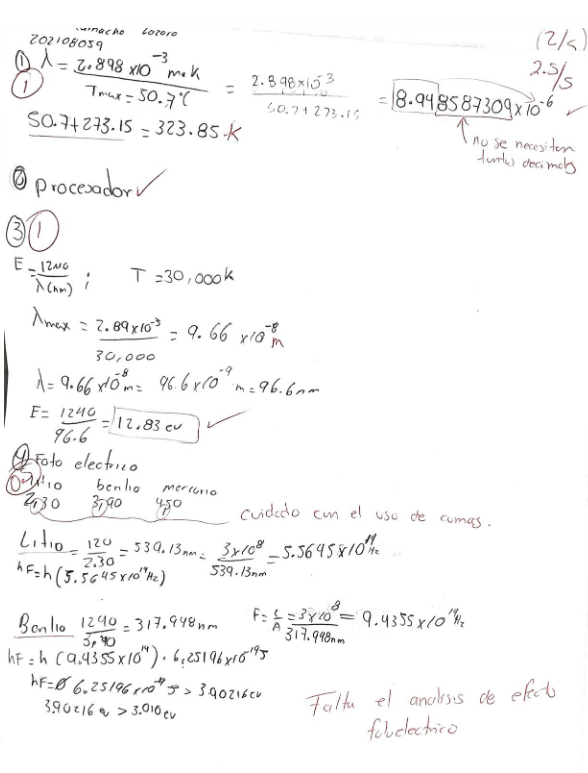 202108059
(2/5)
2.5/5
① λ = 2.898 x10^-3 m·k / Tmax = 50.7°C = 2.898x10^-3 / 50.7+273.15 = 8.948587309x10^-6 ✓
①
50.7+273.15 = 323.85 K
no se necesitan
tantos decimales
② procesador ✓
③ ①
E = 1240 / λ(nm) ; T = 30,000k
λmax = 2.89x10^-3 / 30,000 = 9.66 x10^-8 m
λ = 9.66 x10^-8 m = 96.6 x10^-9 m = 96.6nm
E = 1240 / 96.6 = 12.83 ev ✓
④ Foto electrico
Litio berilio mercurio
2,30 3,90 4,50
cuidado con el uso de comas.
Litio = 120 / 2.30 = 539.13nm = 3x10^8 / 539.13nm = 5.5645x10^14 Hz
hF = h (5.5645x10^14 Hz)
Berilio 1240 / 3,90 = 317.948nm F = c/λ = 3x10^8 / 317.948nm = 9.4355x10^14 Hz
hF = h (9.4355x10^14) · 6.25196x10^-19 J
hF = 6.25196x10^-19 J > 3.90216ev
3.90216 ev > 3.010ev
Falta el analisis de efecto
fotoelectrico